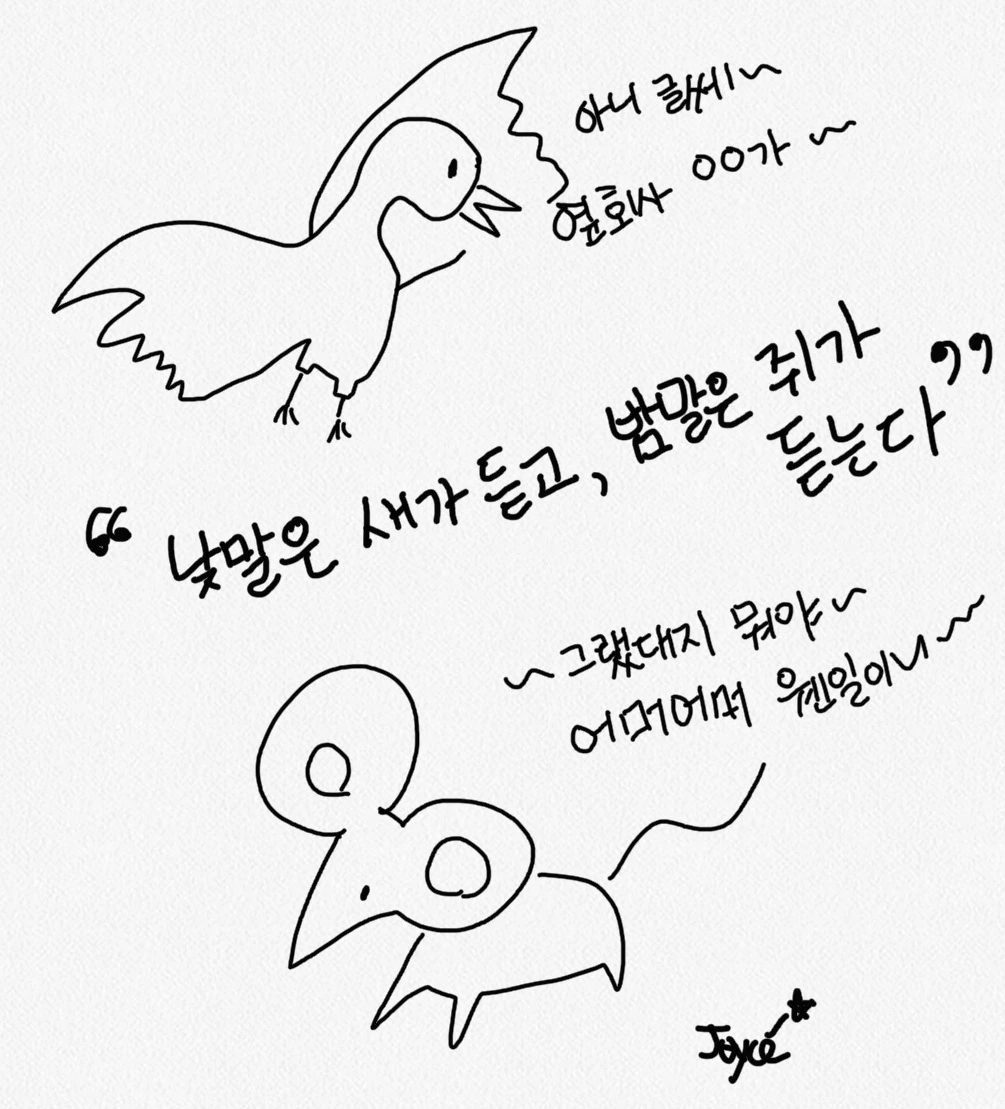 아니 글쎄~
옆회사 OO가 ~
“낮말은 새가 듣고, 밤말은 쥐가
듣는다”
~그랬대지 뭐야~
어머어머 웬일이니~
Joyce☆